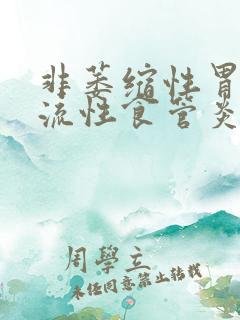 非萎缩性胃
流性食管炎
周學立
未经同意禁止转载